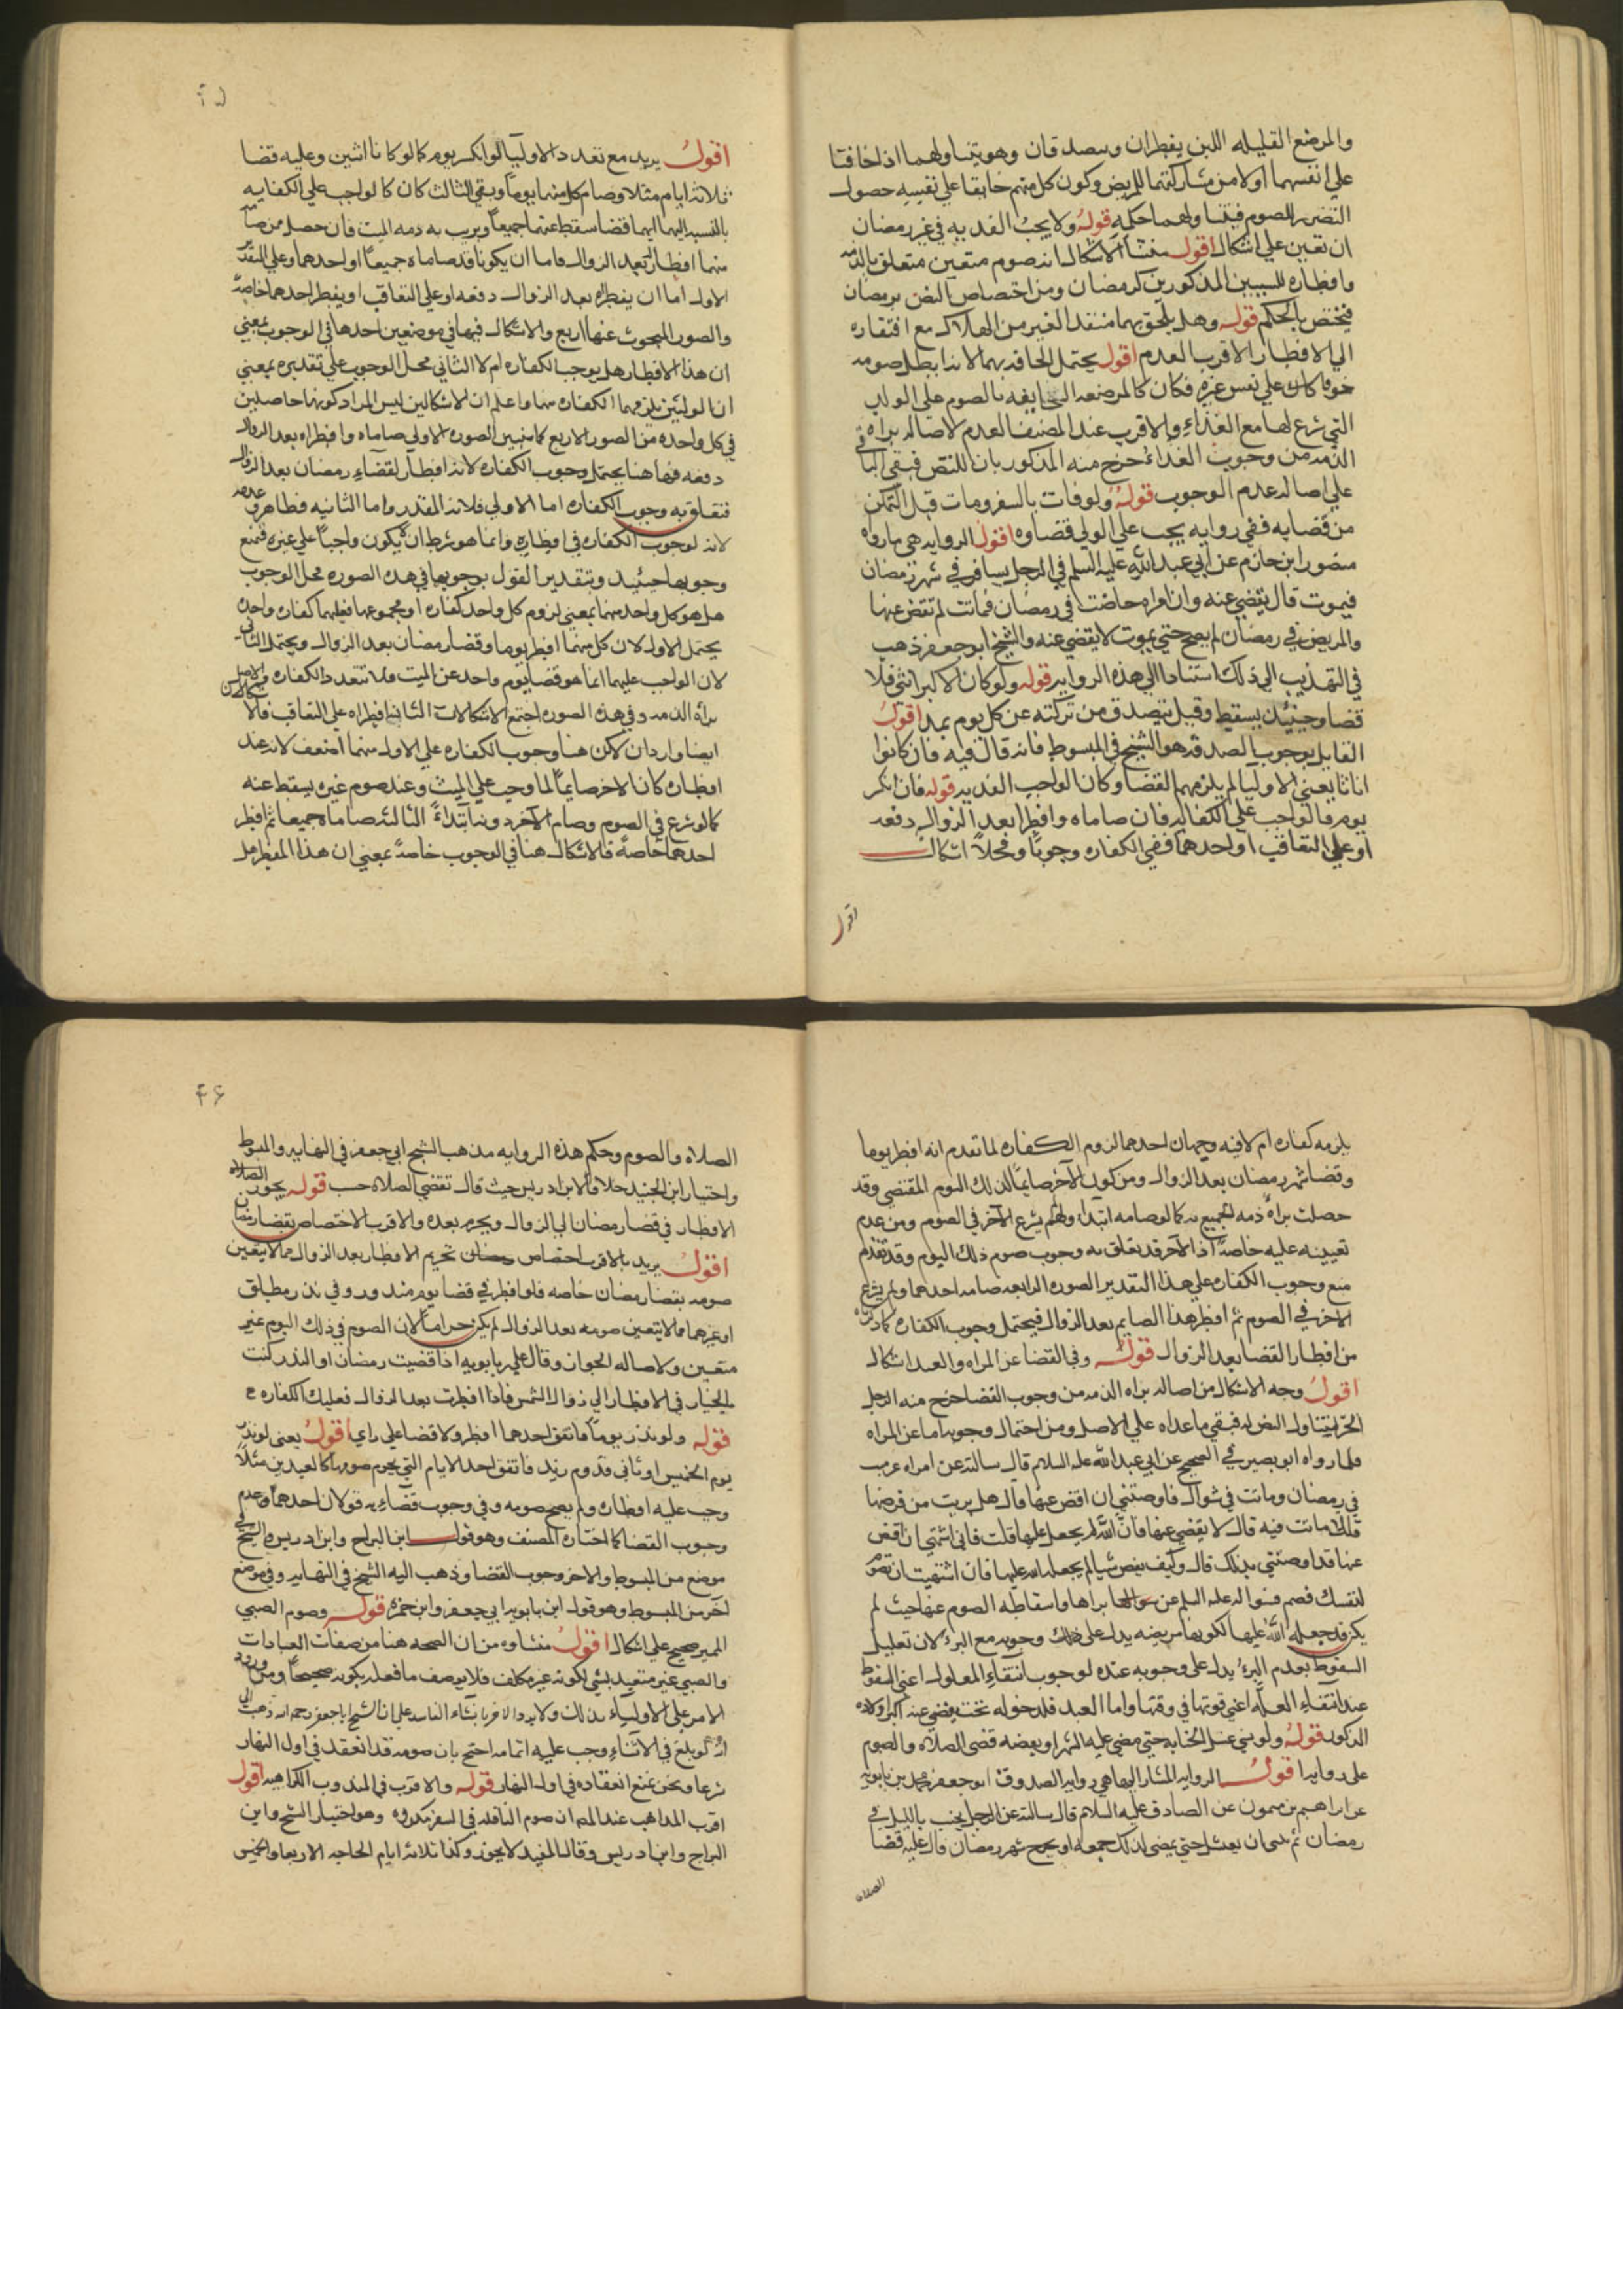 والمرضع القليله اللبن يفطران ويتصدقان وهو يتناولهما اذا خافتا
على انفسهما أولا من مشاركتهما للمريض وكون كل منهم خايفا على نفسه حصول
التضرر بالصوم فيتناولهما حكمه قوله ولا يجب الفديه في غير رمضان
ان تعين على اشكال اقول منشأ الاشكال انه صوم متعين متعلق بالذمه
وافطاره للسببين المذكورين كرمضان ومن اختصاص النص برمضان
فيختص بالحكم قوله وهل يلحق بهما منقذ الغير من الهلاك مع افتقاره
الى الافطار الاقرب العدم اقول يحتمل الحاقه بهما لانه ابطل صومه
خوفا كان على نفس غيره فكان كالمرضعه الخايفه بالصوم على الولد
التي شرع لها مع الفداء والاقرب عند المصنف العدم لاصاله براه
الذمه من وجوب الفداء خرج منه المذكوربان للنص فبقى الباقي
على اصاله عدم الوجوب قوله ولو فات بالسفر ومات قبل التمكن
من قضايه ففي روايه يجب على الولي قضاوه اقول الروايه هي ما رواه
منصور ابن حازم عن ابي عبد الله عليه السلم في الرجل يسافر في شهر رمضان
فيموت قال يقضى عنه وان امراه حاضت في رمضان فماتت لم تقض عنها
والمريض في رمضان لم يصح حتى يموت لا يقضى عنه والشيخ ابو جعفر ذهب
في التهذيب الى ذلك استنادا الى هذه الروايه قوله ولو كان الاكبر انثى فلا
قضا وحينئذ يسقط وقيل يتصدق من تركته عن كل يوم بمد اقول
القايل بوجوب الصدقه هو الشيخ في المبسوط فانه قال فيه فان كانوا
اناثا يعني الاوليا لم يلزمهم القضا وكان الواجب الفديه قوله فان انكسر
يوم فالواجب على الكفايه فان صاماه وافطرا بعد الزوال دفعه
او على التعاقب او احدهما ففي الكفاره وجوبا ومحلا اشكال
اقول
۴۵
اقول يريد مع تعدد الاوليا لو انكسر يوم كما لو كانا اثنين وعليه قضا
ثلاثه ايام مثلا وصام كل منهما يوما وبقي الثالث كان كالواجب على الكفايه
بالنسبه اليهما ايهما قضا سقط عنهما جميعا وبريت به ذمه الميت فان حصل ممن صامه
منهما افطار بعد الزوال فاما ان يكونا قد صاماه جميعا او احدهما وعلى التقدير
الاول اما ان يفطراه بعد الزوال دفعه او على التعاقب او يفطر احدهما خاصه
والصور المبحوث عنها اربع والاشكال فيها في موضعين احدهما في الوجوب بمعنى
ان هذا الافطار هل يوجب الكفاره ام لا الثاني محل الوجوب على تقديره بمعنى
ان الوليين يلزمهما الكفاره منهما واعلم ان الاشكالين ليس المراد كونهما حاصلين
في كل واحده من الصور الاربع كما سنبين الصوره الاولى صاماه وافطراه بعد الزوال
دفعه فهاهنا يحتمل وجوب الكفاره لانه افطار لقضاء رمضان بعد الزوال
فتعلق به وجوب الكفاره اما الاولى فلانه المقدر واما الثانيه فظاهر وعدمه
لانه لوجوب الكفاره في افطاره وانما هو بشرط ان لا يكون واجبا على غيره فمنع
وجوبها حينئذ وبتقدير القول بوجوبها في هذه الصوره محل الوجوب
هل هو كل واحد منهما بمعنى لزوم كل واحد كفاره او مجموعهما فعليهما كفاره واحده
يحتمل الاول لان كل منهما افطر يوما وقضا رمضان بعد الزوال ويحتمل الثاني
لان الواجب عليهما انما هو قضا يوم واحد عن الميت فلا تتعدد الكفاره والاصل
براه الذمه وفي هذه الصوره اجتمع الاشكالات الثانيه افطراه على التعاقب فالاشكالان
ايضا واردان لكن هنا وجوب الكفاره على الاول منهما اضعف لانه عند
افطاره كان الاخر صايما لما وجب على الميت وعند صوم غيره يسقط عنه
كما لو شرع في الصوم وصام الاخر دونه ابتداءً الثالثه صاماه جميعا ثم افطر
احدهما خاصه فالاشكال هنا في الوجوب خاصه بمعنى ان هذا المفطر هل
يلزمه كفاره ام لا فيه وجهان احدهما لزوم الكفاره لما تقدم انه افطر يوما
وقضا شهر رمضان بعد الزوال ومن كون الاخر صايما لذلك اليوم المقتضي وقد
حصلت براه ذمه الجميع به كما لو صامه ابتدا ولم يشرع الاخر في الصوم ومن عدم
تعيينه عليه خاصه اذ الاخر قد يعلق به وجوب صوم ذلك اليوم وقد تقدم
منع وجوب الكفاره على هذا التقدير الصوره الرابعه صامه احدهما ولم يشرع
الاخر في الصوم ثم افطر هذا الصايم بعد الزوال فيحتمل وجوب الكفاره كما ذكرناه
من افطار القضا بعد الزوال قوله وفي القضا عن المراه والعبد اشكال
اقول وجه الاشكال من اصاله براه الذمه من وجوب القضا خرج منه الرجل
الحر لتناول النص له فبقي ما عداه على الاصل ومن احتمال وجوبه اما عن المراه
فلما رواه ابو بصير في الصحيح عن ابي عبد الله عليه السلام قال سالته عن امراه مرضت
في رمضان وماتت في شوال فاوصتني ان اقض عنها قال هل بريت من مرضها
قلت لا ماتت فيه قال لا يقضي عنها فان الله لم يجعله عليها قلت فاني اشتهي ان اقض
عنها قد اوصتني بذلك قال وكيف يقضي شيا لم يجعله الله عليها فان اشتهيت ان تصوم
لنفسك فصم فسواله عليه السلم عن برايها واسقاطه الصوم عنها حيث لم
يكن قد جعله الله عليها لكونها مريضه يدل على ذلك وجوبه مع البرء لان تعليل
السقوط بعدم البرء يدل على وجوبه عنده لوجوب انتفاء المعلول اعني السقوط
عند انتفاء العله اعني فوتها في وقتها واما العبد فلدخوله تحت يقضي عنه اكبر اولاده
الذكور قوله ولو نسي غسل الجنابه حتى مضى عليه الشهر او بعضه قضى الصلاه والصوم
على روايه اقول الروايه المشار اليها هي روايه الصدوق ابو جعفر محمد بن بابويه
عن ابراهيم بن ميمون عن الصادق عليه السلام قال سالته عن الرجل يجنب بالليل في
رمضان ثم نسي ان يغتسل حتى يمضي لذلك جمعه او يخرج شهر رمضان قال عليه قضا
الصلاه
۴۶
الصلاه والصوم وحكم هذه الروايه مذهب الشيخ ابي جعفر في النهايه والمبسوط
واختيار ابن الجنيد خلافا لابن ادريس حيث قال تقضي الصلاه حسب قوله يجوز
الافطار في قضا رمضان الى الزوال ويحرم بعده والاقرب الاختصاص بقضا رمضان
اقول يريد بالاقرب اختصاص تحريم الافطار بعد الزوال مما لا يتعين
صومه بقضا رمضان خاصه فلو افطر في قضا يوم منذور وفي نذر مطلق
او غيرهما مما لا يتعين صومه بعد الزوال لم يكن حراما لان الصوم في ذلك اليوم غير
متعين ولاصاله الجواز وقال علي بن بابويه اذا قضيت رمضان او النذر كنت
بالخيار في الافطار الى زوال الشمس فاذا افطرت بعد الزوال فعليك الكفاره
قوله ولو نذر يوما فاتفق احدهما افطر ولا قضا على راي اقول يعني لو نذر
يوم الخميس او ثاني قدوم زيد فاتفق احد الايام التي يحرم صومها كالعيدين مثلا
وجب عليه افطاره ولم يصح صومه وفي وجوب قضاءه قولان احدهما عدم
وجوب القضا كما اختاره المصنف وهو قول ابن البراج وابن ادريس والشيخ في
موضع من المبسوط والاخر وجوب القضا وذهب اليه الشيخ في النهايه وفي موضع
اخر من المبسوط وهو قول ابن بابويه ابي جعفر وابن حمزه قوله وصوم الصبي
المميز صحيح على اشكال اقول منشاوه من ان الصحه هنا من صفات العبادات
والصبي غير متعبد بشي لكونه غير مكلف فلا يوصف ما فعله بكونه صحيحا ومن ورود
الامر على الاولياء بذلك
انه لو بلغ في الاثناء وجب عليه اتمامه احتج بان صومه قد انعقد في اول النهار
شرعا ونحن نمنع انعقاده في اول النهار قوله والاقرب في المندوب الكراهيه اقول
اقرب المذاهب عند المص ان صوم النافله في السفر مكروه وهو اختيار الشيخ وابن
البراج وابن ادريس وقال المفيد لا يجوز وكذا ثلاثه ايام الحاجه الاربعا والخميس